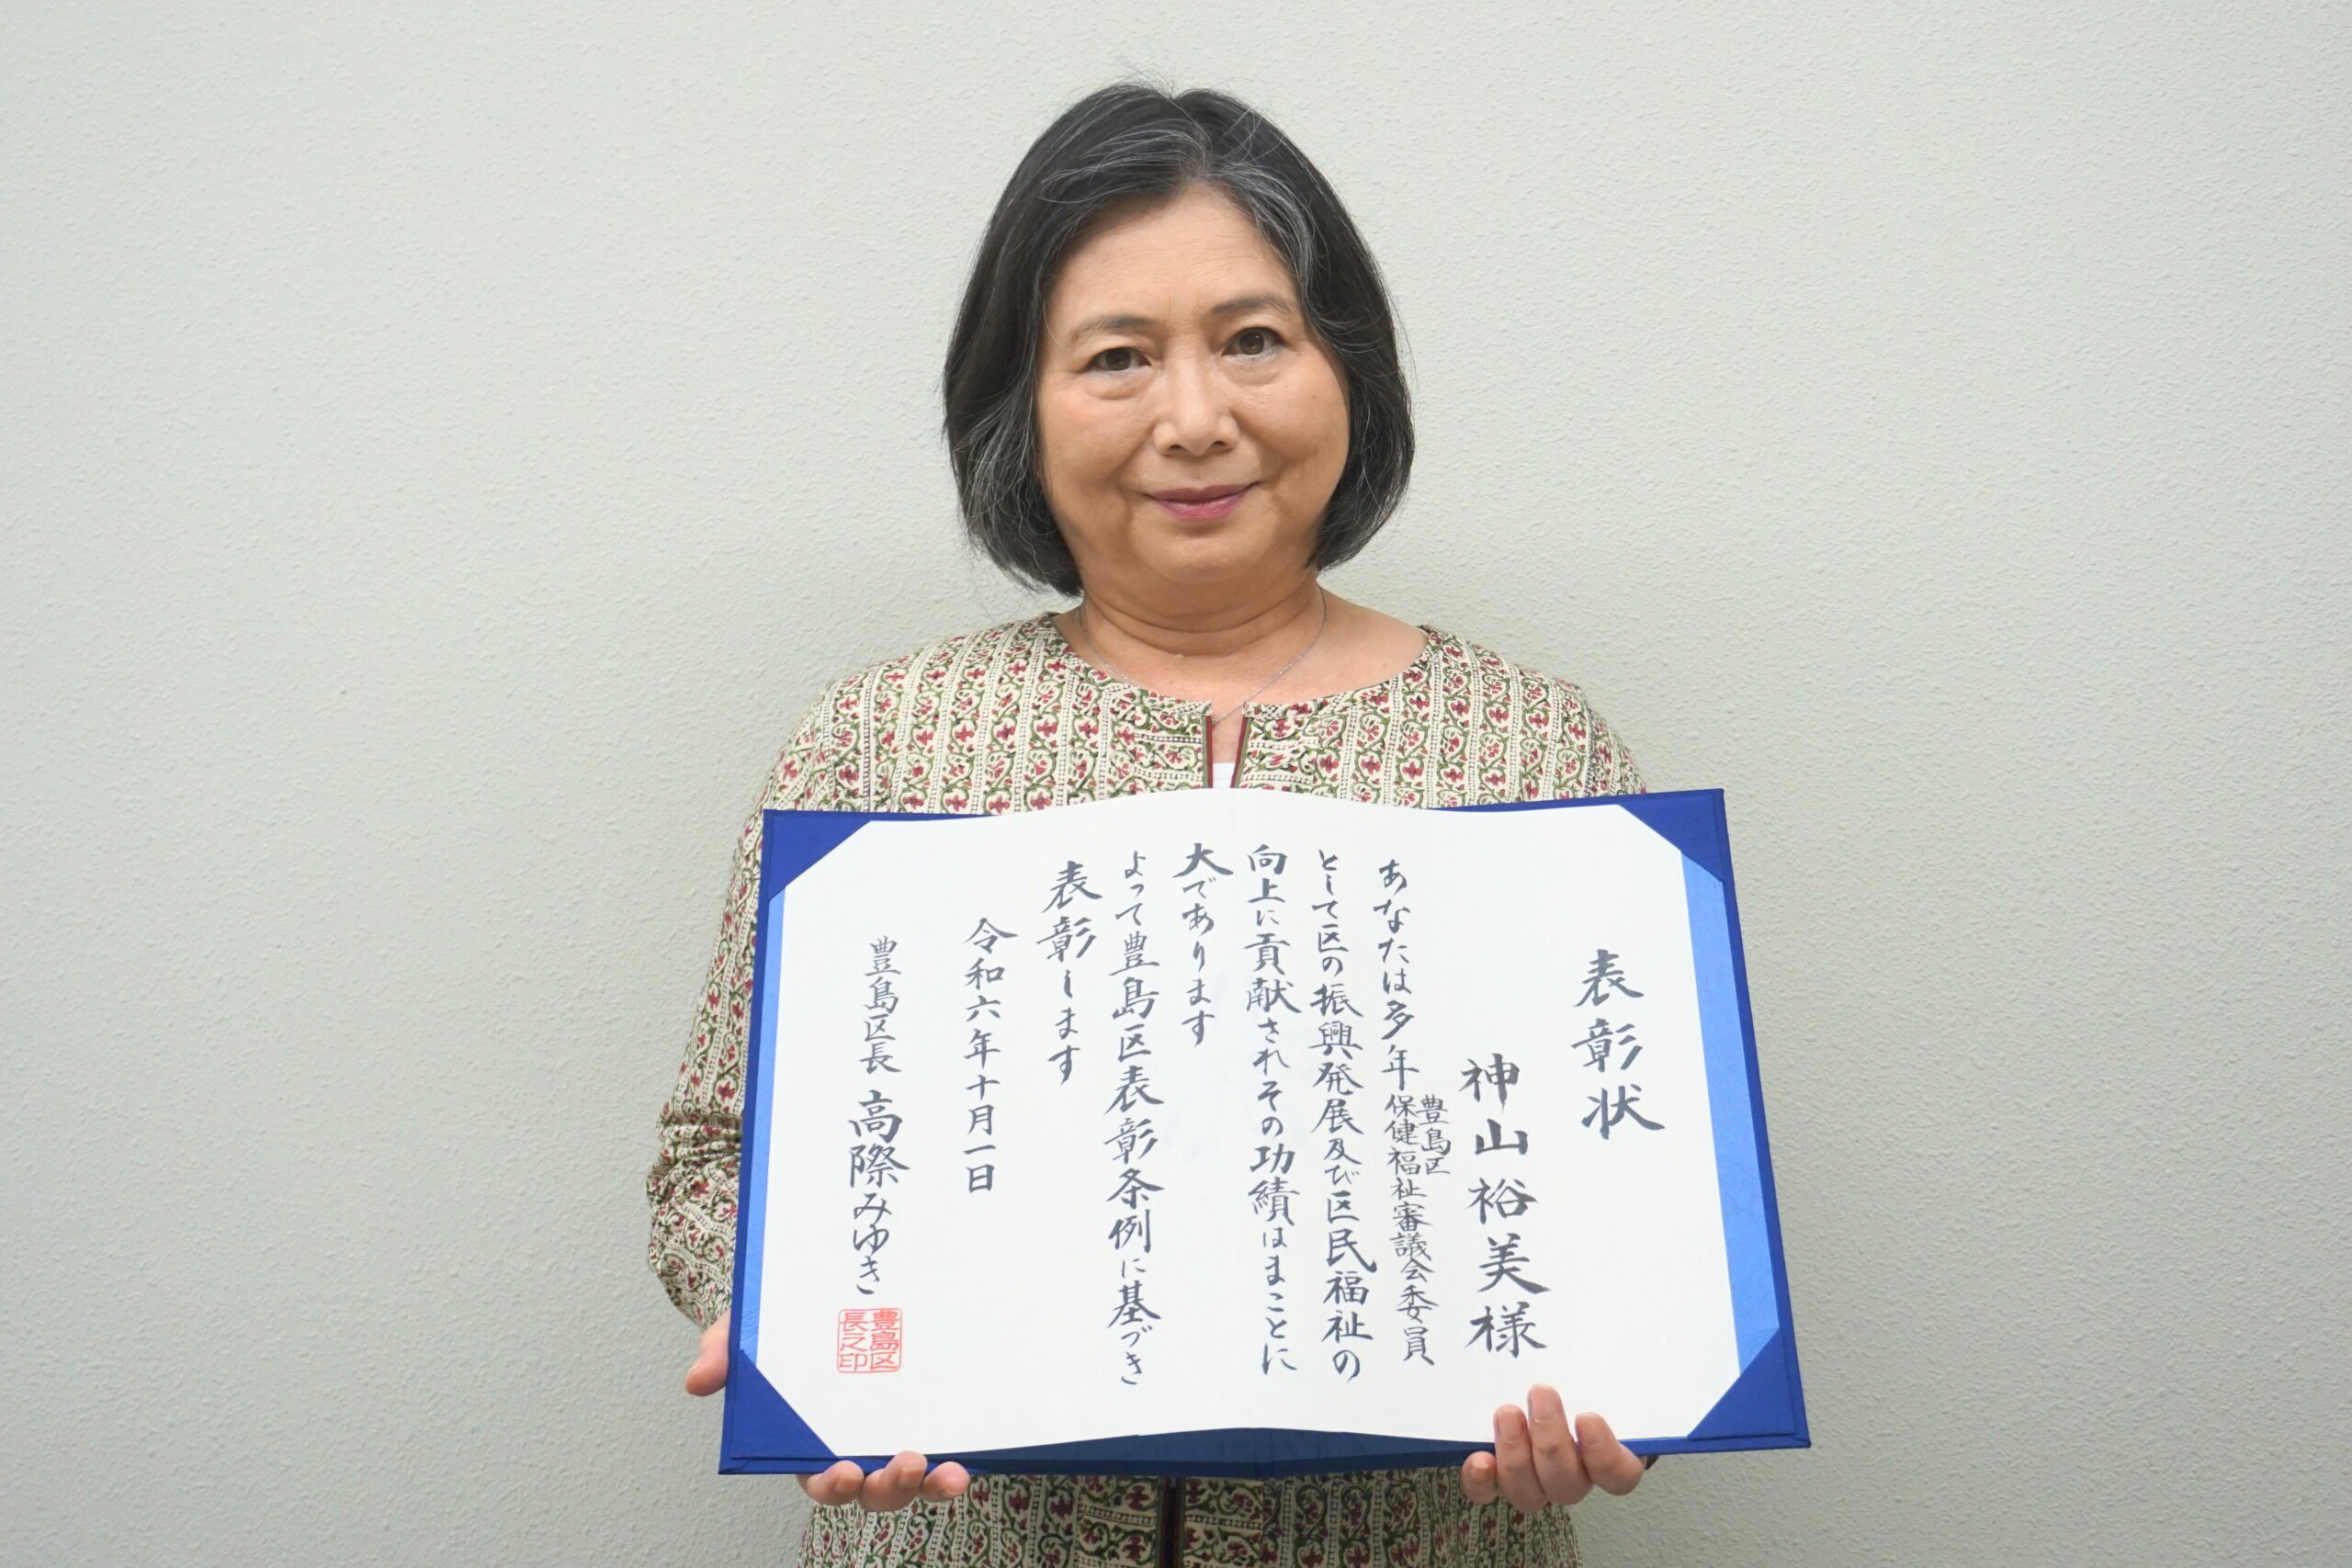 表彰状
神山裕美様
あなたは多年豊島区保健福祉審議会委員
として区の振興発展及び区民福祉の
向上に貢献されその功績はまことに
大であります
よって豊島区表彰条例に基づき
表彰します
令和六年十月一日
豊島区長 高際みゆき
豊島区
長之印